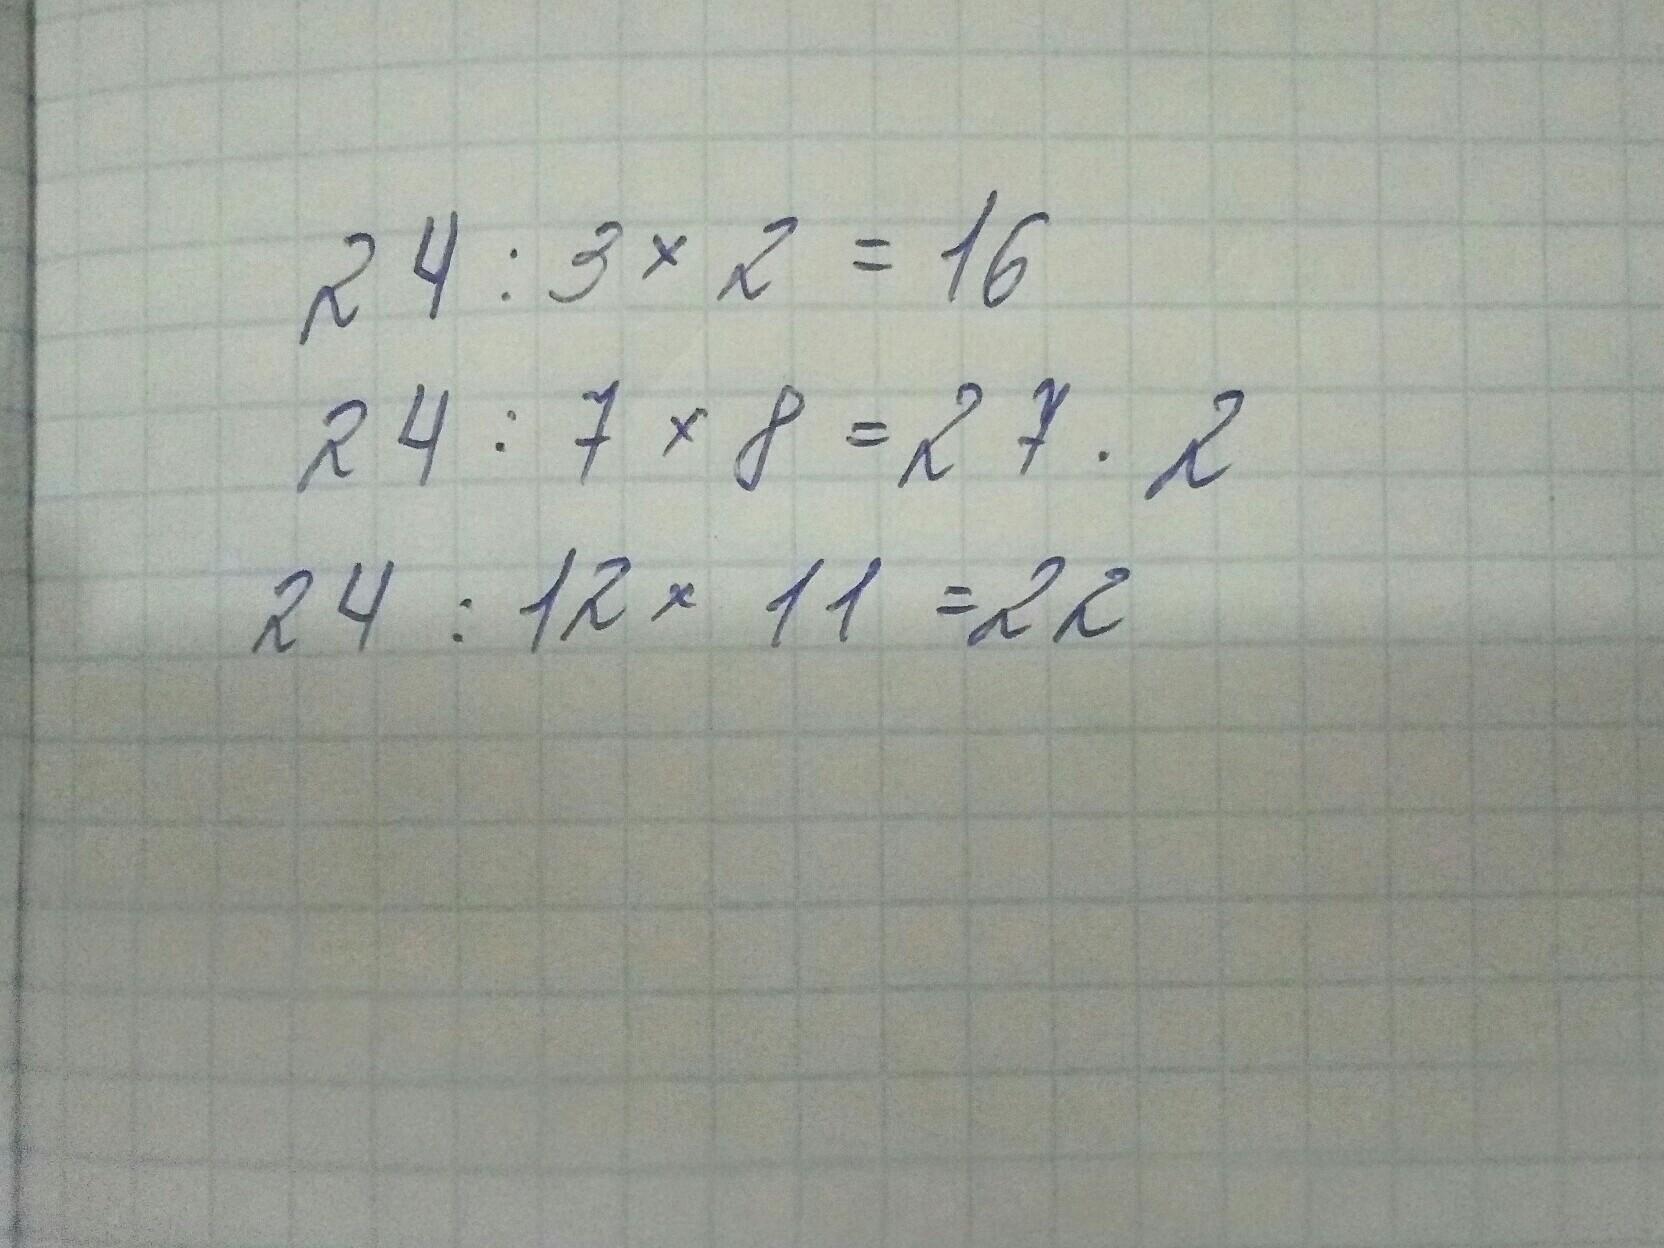 24 : 3 × 2 = 16
24 : 7 × 8 = 27.2
24 : 12 × 11 = 22